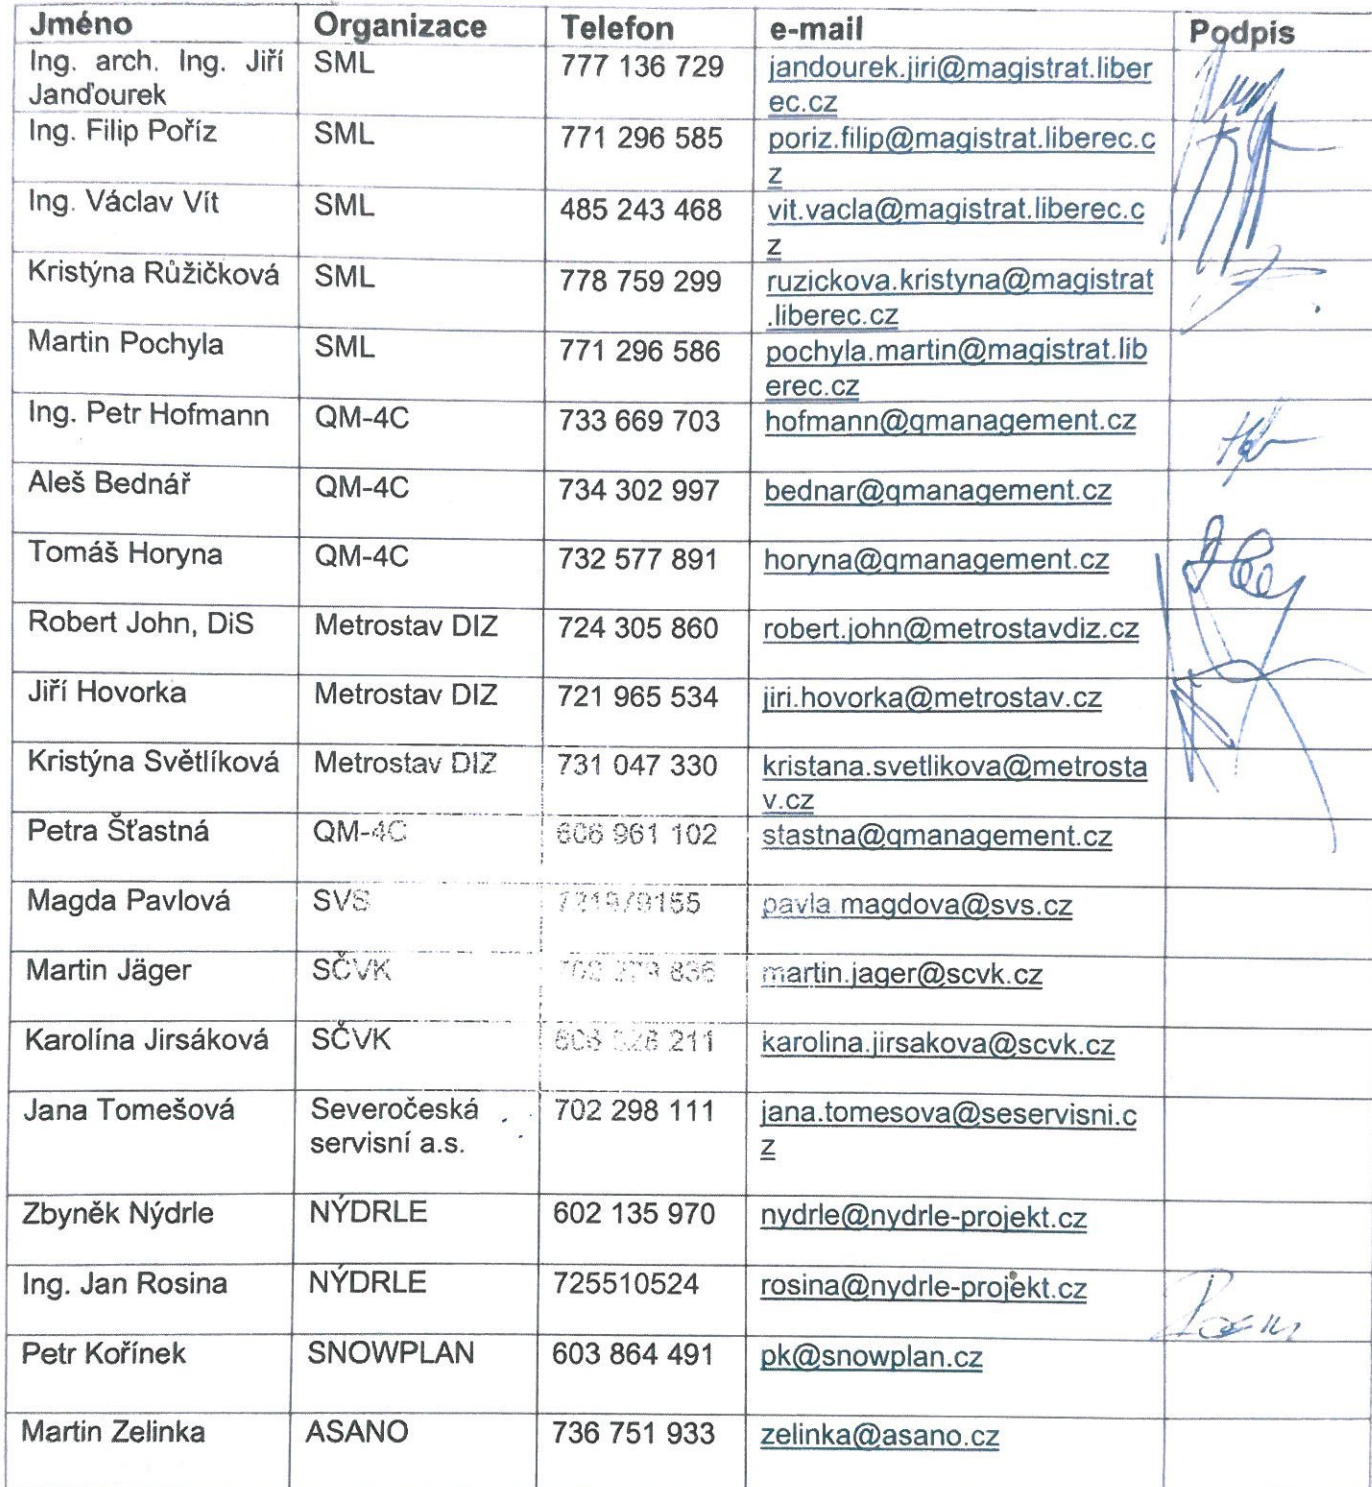 Jméno Organizace Telefon e-mail Podpis
Ing. arch. Ing. Jiří SML 777 136 729 jandourek.jiri@magistrat.liber
Janďourek ec.cz
Ing. Filip Poříz SML 771 296 585 poriz.filip@magistrat.liberec.c
z
Ing. Václav Vít SML 485 243 468 vit.vacla@magistrat.liberec.c
z
Kristýna Růžičková SML 778 759 299 ruzickova.kristyna@magistrat
.liberec.cz
Martin Pochyla SML 771 296 586 pochyla.martin@magistrat.lib
erec.cz
Ing. Petr Hofmann QM-4C 733 669 703 hofmann@qmanagement.cz
Aleš Bednář QM-4C 734 302 997 bednar@qmanagement.cz
Tomáš Horyna QM-4C 732 577 891 horyna@qmanagement.cz
Robert John, DiS Metrostav DIZ 724 305 860 robert.john@metrostavdiz.cz
Jiří Hovorka Metrostav DIZ 721 965 534 jiri.hovorka@metrostav.cz
Kristýna Světlíková Metrostav DIZ 731 047 330 kristana.svetlikova@metrosta
v.cz
Petra Šťastná QM-4C 606 961 102 stastna@qmanagement.cz
Magda Pavlová SVS pavla.magdova@svs.cz
Martin Jäger SČVK 836 martin.jager@scvk.cz
Karolína Jirsáková SČVK 211 karolina.jirsakova@scvk.cz
Jana Tomešová Severočeská 702 298 111 jana.tomesova@seservisni.c
servisní a.s. z
Zbyněk Nýdrle NÝDRLE 602 135 970 nydrle@nydrle-projekt.cz
Ing. Jan Rosina NÝDRLE 725510524 rosina@nydrle-projekt.cz
Petr Kořínek SNOWPLAN 603 864 491 pk@snowplan.cz
Martin Zelinka ASANO 736 751 933 zelinka@asano.cz